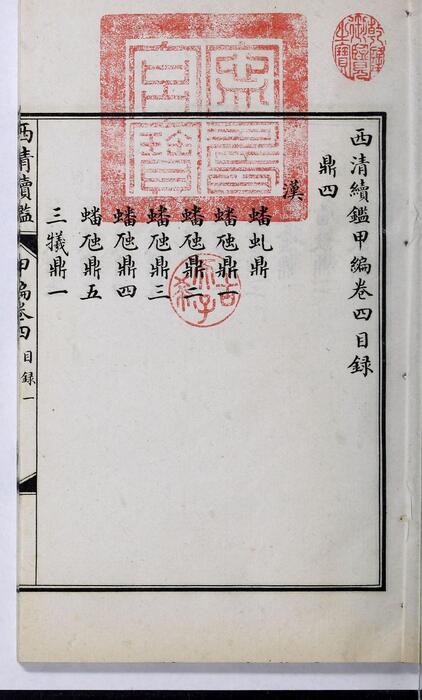 西清續鑑甲編卷四目録
鼎四
漢
蟠虬鼎
蟠虺鼎一
蟠虺鼎二
蟠虺鼎三
蟠虺鼎四
蟠虺鼎五
三犧鼎一
西清續鑑
甲編卷四
目録一
乾隆御覽之寶
古希天子